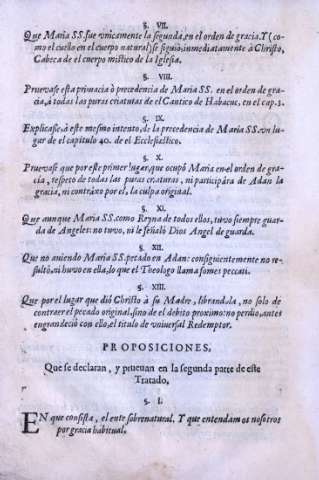 §. VII.
Que Maria SS. fue vnicamente la segunda, en el orden de gracia. Y (co-
mo el cuello en el cuerpo natural) se siguiò, immediatamente à Christo,
Cabeça de el cuerpo mistico de la Iglesia.
§. VIII.
Pruevase esta primacia ò precedencia de Maria SS. en el orden de gra-
cia, à todas las puras criaturas de el Cantico de Habacuc, en el cap. 3.
§. IX.
Explicase, à este mesmo intento, de la precedencia de Maria SS. vn lu-
gar de el capitulo 40. de el Ecclesiastico.
§. X.
Pruevase que por este primer lugar, que ocupò Maria en el orden de gra-
cia, respeto de todas las puras criaturas, ni participára de Adan la
gracia, ni contraxo por el, la culpa original.
§. XI.
Que aunque Maria SS. como Reyna de todos ellos, tuvo siempre guar-
da de Angeles: no tuvo, ni le señalò Dios Angel de guarda.
§. XII.
Que no aviendo Maria SS. pecado en Adan: consiguientemente no re-
sultò, ni huvo en ella, lo que el Theologo llama fomes peccati.
§. XIII.
Que por el lugar que diò Christo à su Madre, librandola, no solo de
contraer el pecado original, sino de el debito proximo: no perdio, antes
engrandeciò con ello, el titulo de vniversal Redemptor.
PROPOSICIONES,
Que se declaran, y pruevan en la segunda parte de este
Tratado.
§. I.
EN que consista, el ente sobrenatural. Y que entendamos nosotros
por gracia habitual.